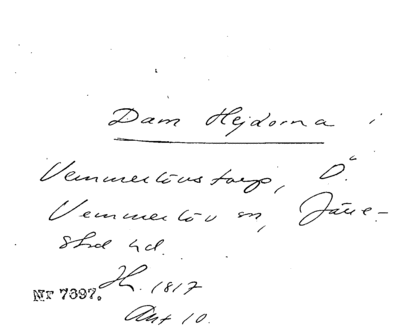 Dam Hejdorna i
Vemmenlövstorp, Ö.
Vemmenlöv sn, Järre-
stad hd.
Nr 7397. Hh. 1817
Akt 10.